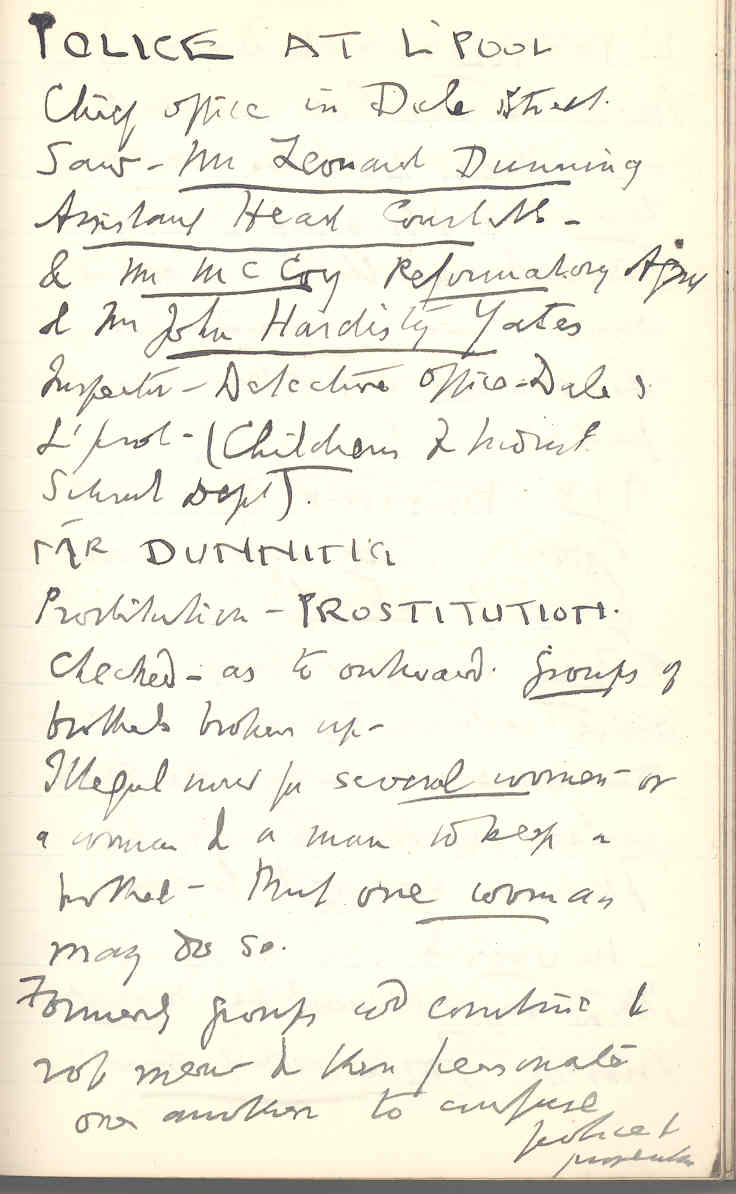 POLICE AT L'POOL
Chief office in Dale Street.
Saw - Mr Leonard Dunning
Assistant Head Constable -
& Mr McCoy Reformatory Agent
& Mr John Hardisty Yates
Inspector - Detective Office - Dale S
L'pool - (Childrens & Indust
School Dept).
MR DUNNING
Prostitution - PROSTITUTION.
Checked - as to outward. Groups of
brothels broken up -
Illegal now for several women or
a woman & a man to keep a
brothel - But one woman
may do so.
Formerly groups wd combine &
rob men & then personate
one another to confuse
police &